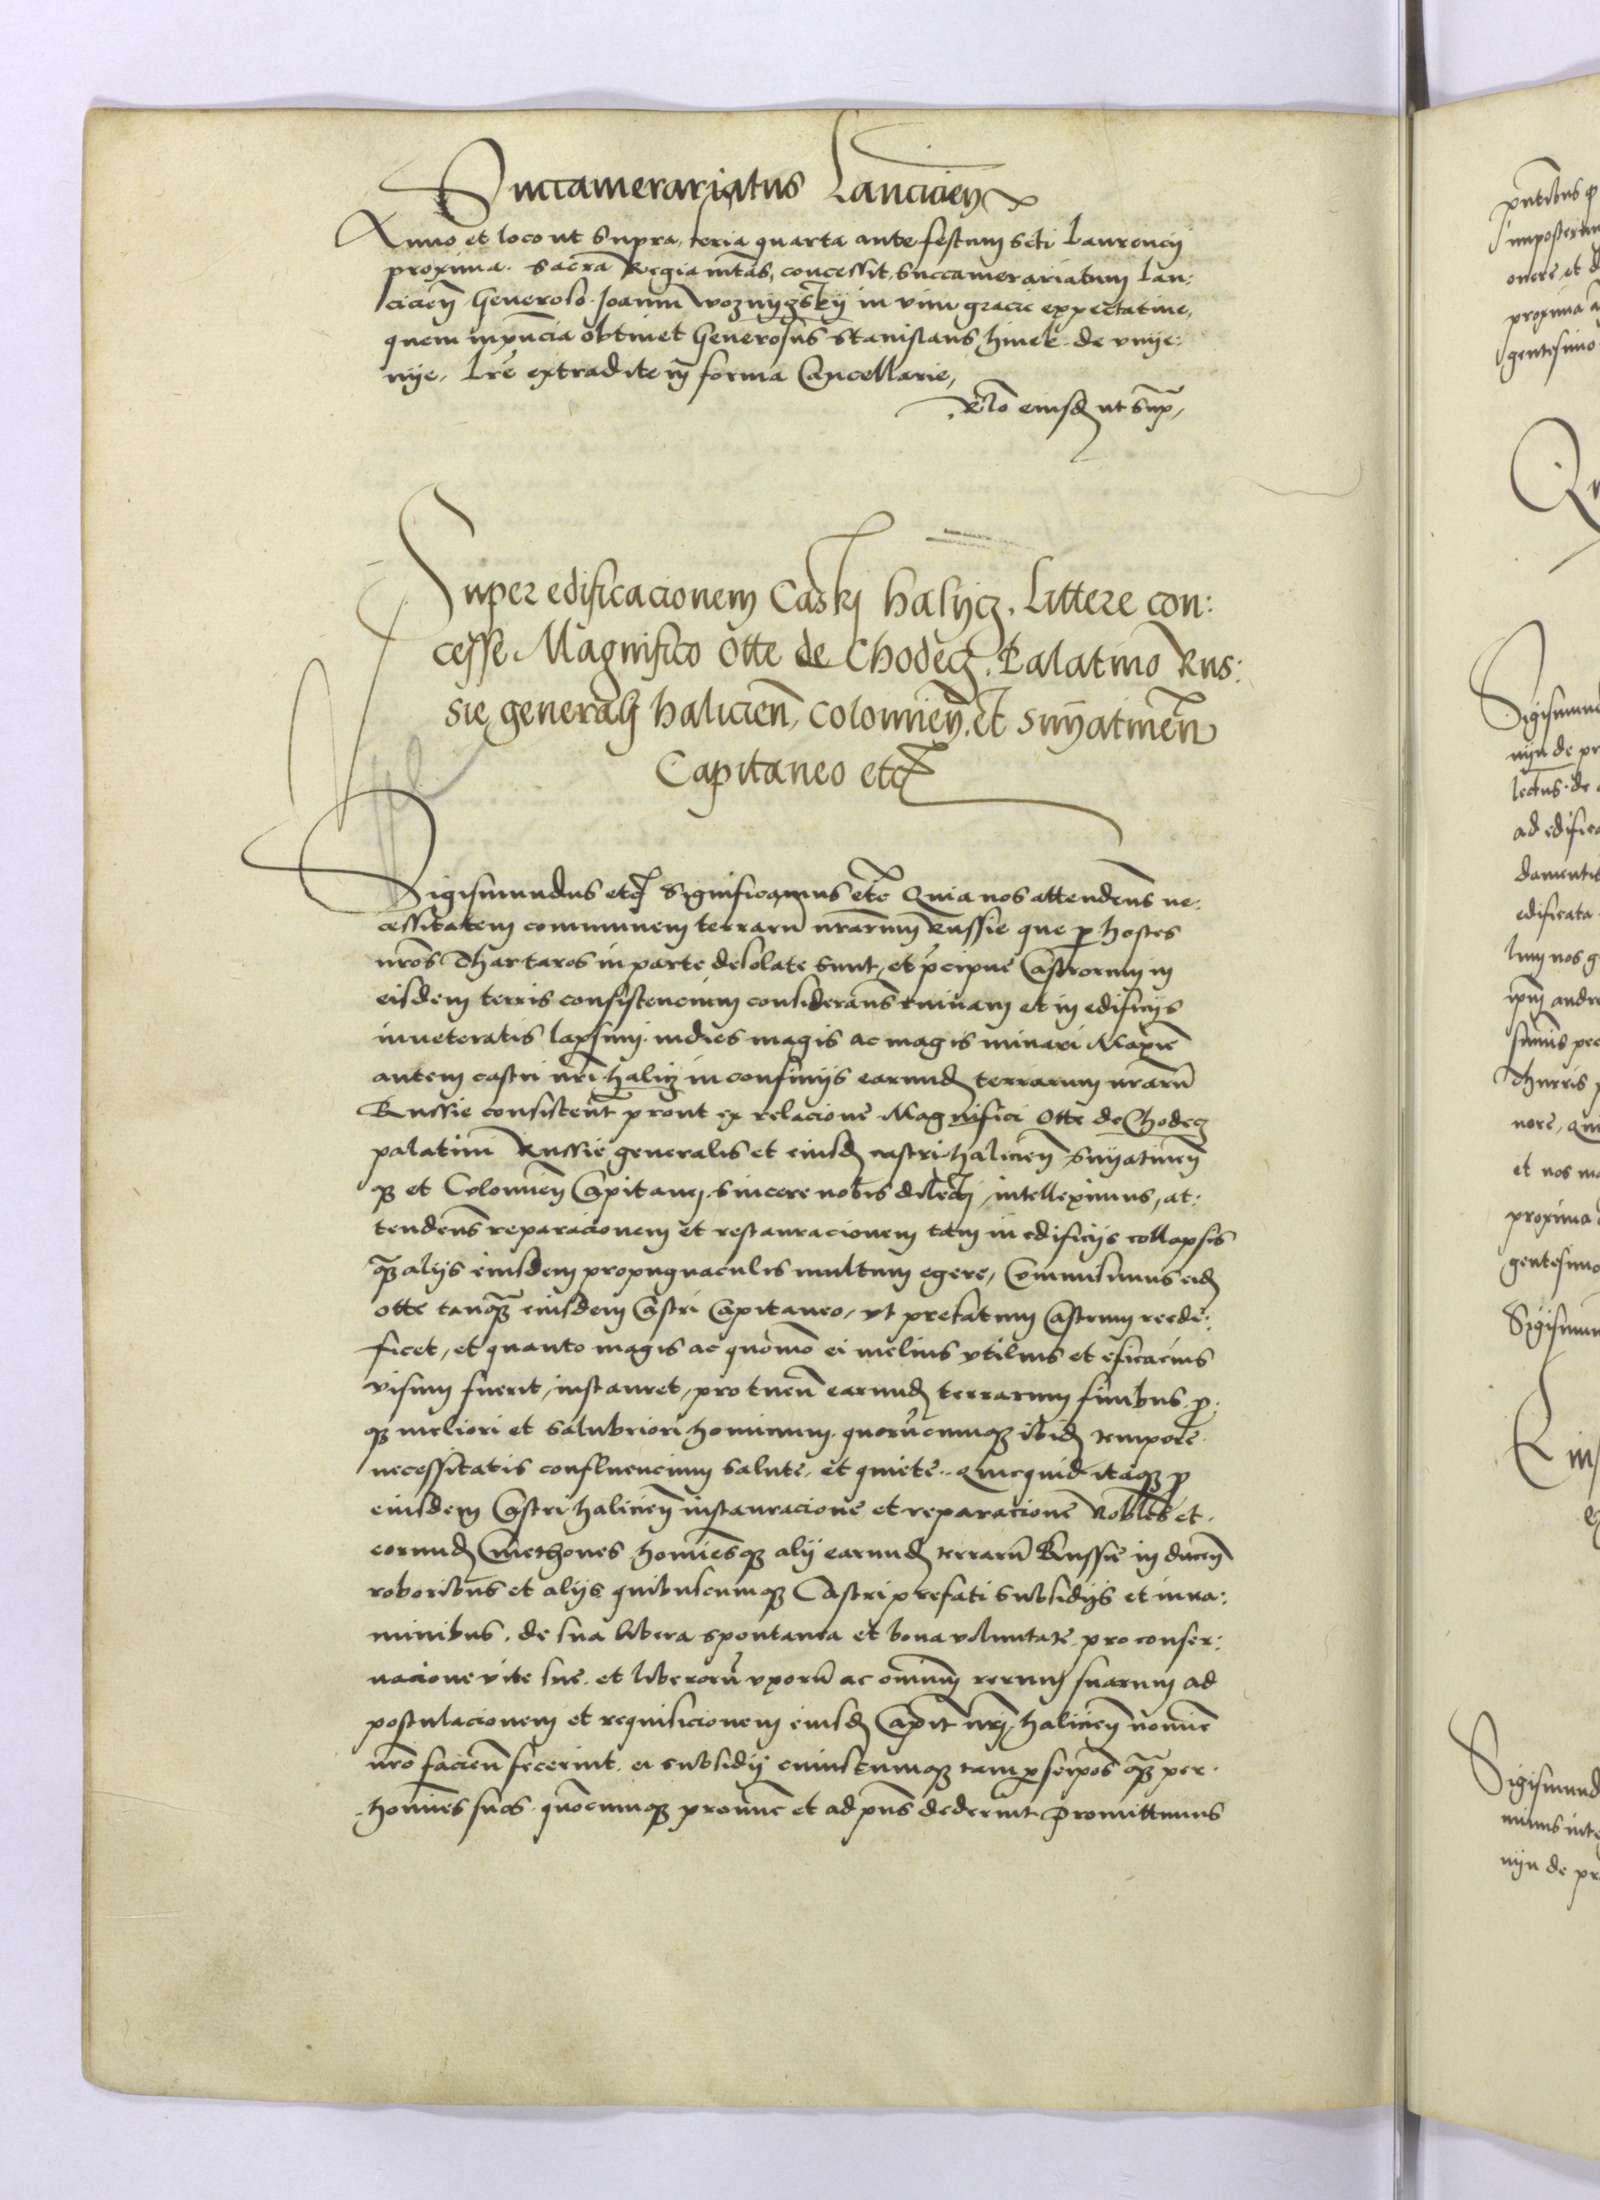 Succamerariatus Lancicien̄
Anno et loco ut supra, feria quarta ante festum scti Laurencij
proxima. Sacra Regia mtas, concessit, Succamerariatum Lan:
cicien̄ Generoso Joanni in vim gracie expectative,
quem inpn̄cia obtinet Generosus Stanislaus hinek de vnije:
nije. Lre extradite in̄ forma Cancellarie,
Rlo eiusd ut sup,
Super edificacionem Castrj halijcz, Littere con:
cesse Magnifico Otte de Chodecz, Palatino Rus:
sie generalj halicien̄, Colomien̄, et Snijatinen̄
Capitaneo etc
Sigismundus etc Significamus etc Quia nos attendens ne:
cessitatem communem terraru nrarum Russie que p hostes
nros Thartaros in parte desolate sunt, et pcipue Castrorum in
eisdem terris consistencium considerans ruinam et in edificijs
inveteratis lapsum indies magis ac magis minari Maxie
autem castri nri halicz in confinijs earund terrarum nraru
Russie consisten̄t prout ex relacione Magnifici Otte de Chodecz
palatini Russie generalis et eiusd castri halicien̄ Snijatinen̄
q et Colomien̄ Capitanej sincere nobis dilectj intelleximus, at:
tendens reparacionem et restauracionem tam in edificijs collapsis
q alijs eiusdem propugnaculis multum egere, Commisimus eid
Otte tanq eiusdem Castri Capitaneo, vt prefatum Castrum reedi:
ficet, et quanto magis ac quomo ei melius vtilius et eficacius
visum fuerit, instauret, pro tuen̄ earund terrarum finibus p:
q meliori et salubriori hominum quorucumq ibid tempore
necessitatis confluencium salute, et quiete. Quicquid itaq p
eiusdem Castri halicien̄ instauracione et reparacione Nobiles et
eorund Cmethones hominesq alij earund terraru Russie in ducen̄
roboribus et alijs quibuscumq Castri prefati subsidijs et iuva:
minibus, de sua libera spontanea et bona voluntate pro conser:
vacione vite sue et liberoru vxoru ac omnium rerum suarum ad
postulacionem et requisicionem eiusd Capit nrj halicien̄ nomine
nro facien̄ fecerint, ei subsidij cuiuscumq tam p seipos q per
homines suos quocumq pronunc et ad pns dederint Promittimus